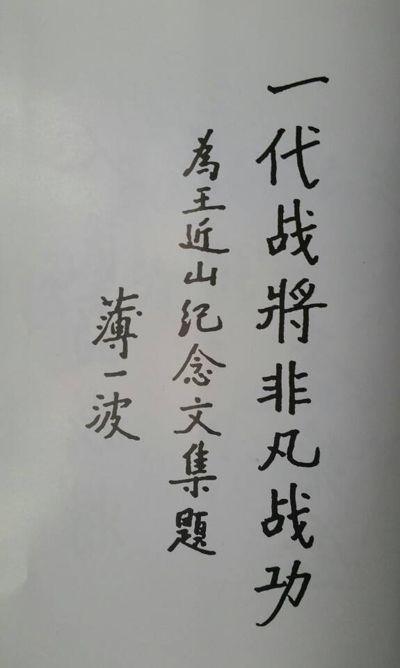 一代战將非凡战功
為王近山纪念文集題
薄一波